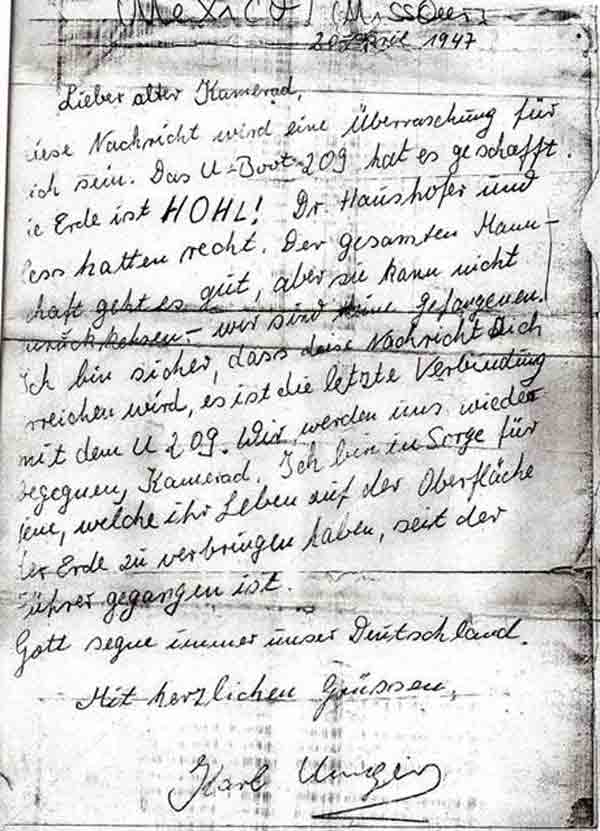 (MEXICO) (MISSOURI
20 April 1947
Lieber alter Kamerad,
iese Nachricht wird eine Überraschung für
ich sein. Das U-Boot-209 hat es geschafft.
ie Erde ist HOHL! Dr. Haushofer und
less hatten recht. Der gesamten Mann-
chaft geht es gut, aber sie kann nicht
wir sind keine Gefangenen.
Ich bin sicher, dass diese Nachricht Dich
rreichen wird, es ist die letzte Verbindung
mit dem U 209. Wir werden uns wieder
begegnen, Kamerad. Ich bin in Sorge für
jene, welche ihr Leben auf der Oberfläche
der Erde zu verbringen haben, seit der
Führer gegangen ist.
Gott segne immer unser Deutschland.
Mit herzlichen Grüssen,
Karl Unger